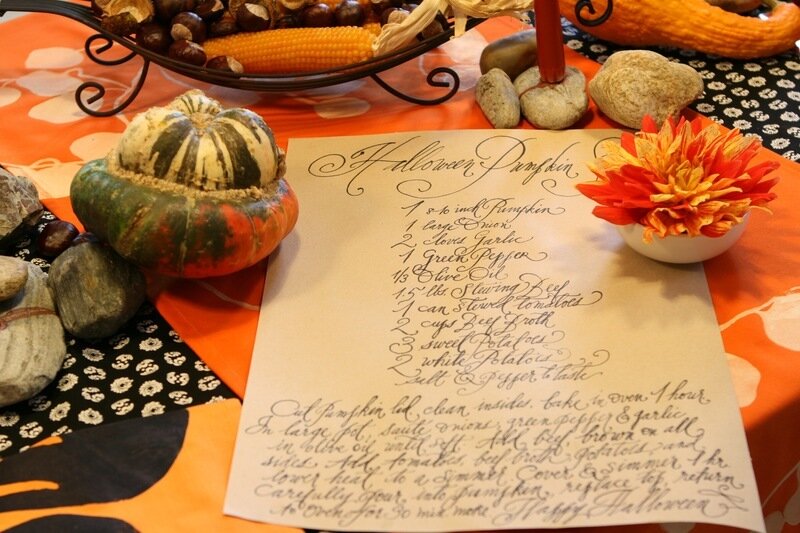 Halloween Pumpkin
1 8-10 inch Pumpkin
1 large Onion
2 cloves Garlic
1 Green Pepper
1/3 Olive Oil
1.5 lbs. Stewing Beef
1 can stewed tomatoes
2 cups Beef Broth
3 sweet Potatoes
2 white Potatoes
salt & Pepper to taste
Cut Pumpkin lid, clean insides. bake in oven 1 hour
In large pot, saute onions, green pepper & garlic
in olive oil until soft. Add beef, brown on all
sides. Add tomatoes, beef broth, potatoes, and
lower heat to a simmer. Cover & simmer 1 hr.
Carefully pour into pumpkin, replace top, return
to oven for 30 min more. Happy Halloween